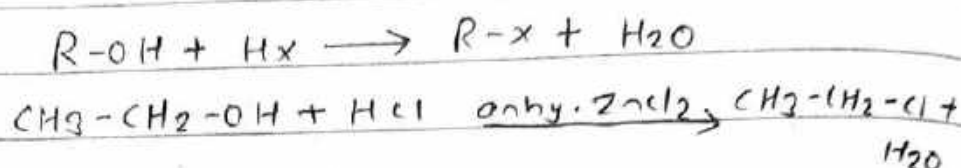 R-OH + Hx ⟶ R-x + H2O
CH3-CH2-OH + HCl anhy. Zncl2⟶ CH3-CH2-Cl +
H2O